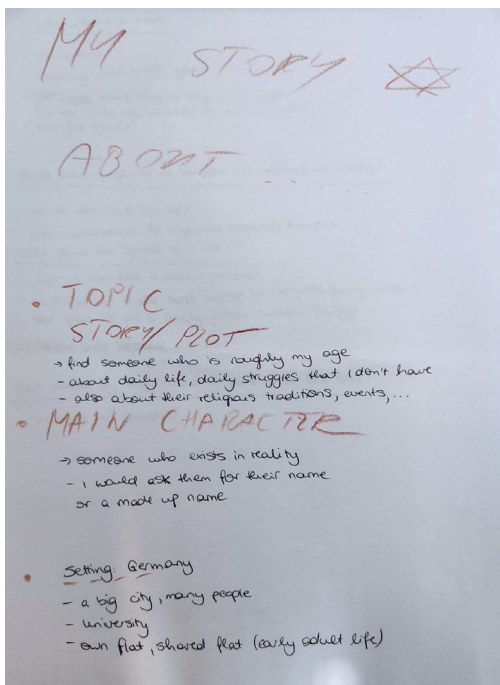 MY STORY
ABOUT ...
• TOPIC
STORY/PLOT
→ find someone who is roughly my age
- about daily life, daily struggles that I don't have
- also about their religious traditions, events,...
• MAIN CHARACTER
→ someone who exists in reality
- I would ask them for their name
or a made up name
• Setting: Germany
- a big city, many people
- university
- own flat, shared flat (early adult life)